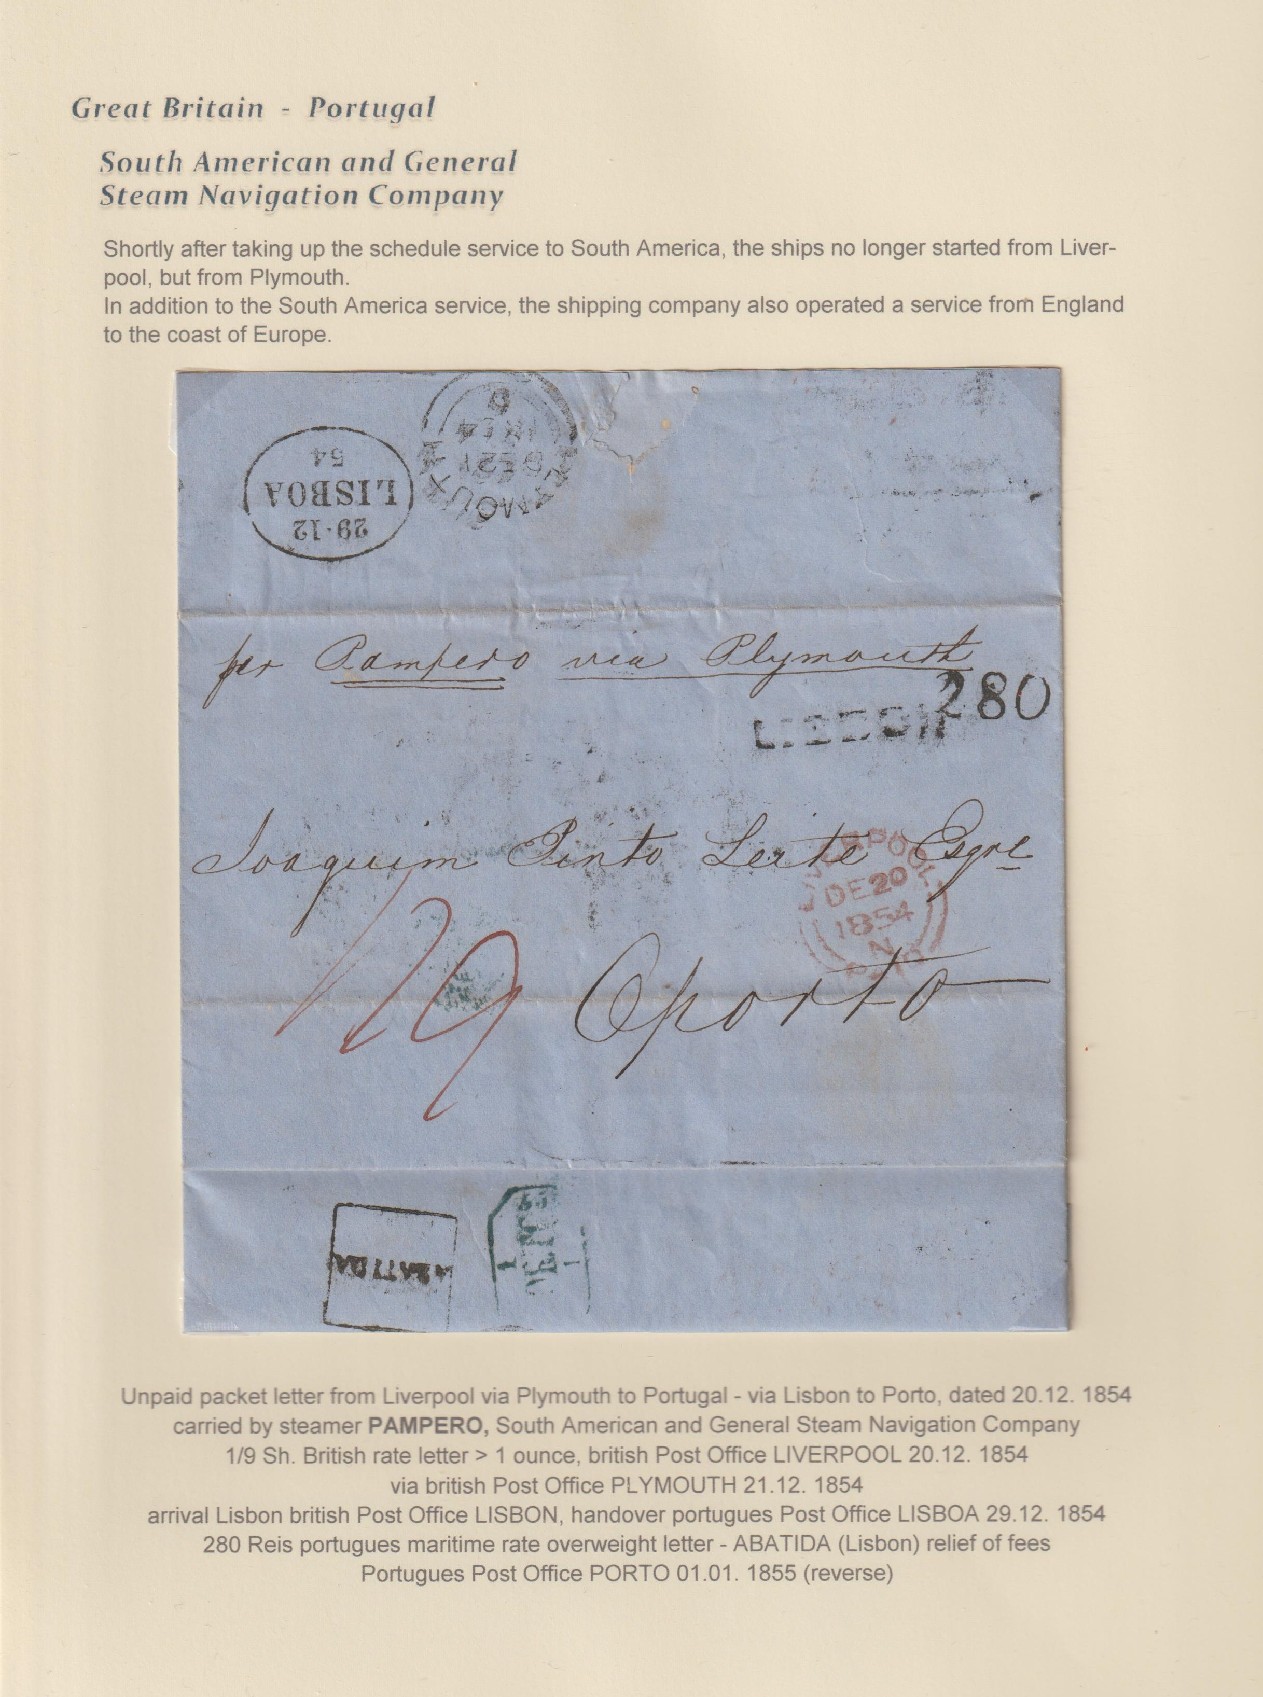 Great Britain - Portugal
South American and General
Steam Navigation Company
Shortly after taking up the schedule service to South America, the ships no longer started from Liver-
pool, but from Plymouth.
In addition to the South America service, the shipping company also operated a service from England
to the coast of Europe.
54
LISBOA
29·12
DE21
per Pampero via Plymouth
280
LISBON
Joaquim Pinto Leite Esqre
LIVERPOOL
DE 20
1854
N
Oporto
1/9
ABATIDA
Unpaid packet letter from Liverpool via Plymouth to Portugal - via Lisbon to Porto, dated 20.12. 1854
carried by steamer PAMPERO, South American and General Steam Navigation Company
1/9 Sh. British rate letter > 1 ounce, british Post Office LIVERPOOL 20.12. 1854
via british Post Office PLYMOUTH 21.12. 1854
arrival Lisbon british Post Office LISBON, handover portugues Post Office LISBOA 29.12. 1854
280 Reis portugues maritime rate overweight letter - ABATIDA (Lisbon) relief of fees
Portugues Post Office PORTO 01.01. 1855 (reverse)